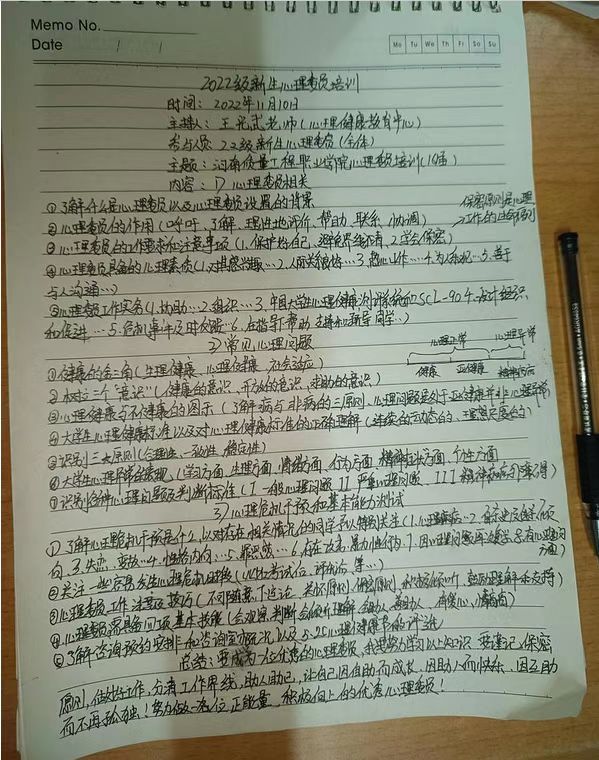 Memo No.
Date / /
Mo Tu We Th Fr Sa Su
2022级新生心理委员培训
时间：2022年11月10日
主持人：王 老师（心理健康教育中心）
参与人员：22级新生心理委员（全体）
主题：河南质量工程职业学院心理委员培训（19届）
内容：1）心理委员相关
①了解什么是心理委员以及心理委员设置的背景
保密原则是心理工作的生命原则
②心理委员的作用（呼吁、了解、理性地评价、帮助、联系、协调）
③心理委员的工作要求和注意事项（1.保护好自己，2.学会保密）
④心理委员具备的心理素质（1.对其感兴趣…2.人际关系良好…3.热心工作…4.为人乐观…5.善于
与人沟通…）
⑤心理委员工作实务（1.协助…2.组织…3.中国大学生心理健康测评系统和SCL-90 4.设计组织
和促进…5.危机事件及时反馈…6.在指导、帮助、支持和辅导同学…）
2）常见心理问题
心理正常 心理异常
健康 亚健康 精神疾病
①健康的金三角（生理健康、心理健康、社会适应）
②树立三个“意识”（健康的意识、开放的意识、求助的意识）
③心理健康与不健康的图示（了解病与非病的三原则、心理问题是处于亚健康并非心理异常）
④大学生心理健康标准以及对心理健康标准的正确理解（连续的动态的、理想尺度的）
⑤识别三大原则（合理性、一致性、稳定性）
⑥大学生心理异常的表现（学习方面、生理方面、情绪方面、行为方面、精神症状方面、个性方面）
⑦识别各种心理问题及判断标准（I 一般心理问题 II 严重心理问题、III 精神疾病）
3）心理危机干预和基本能力测试
①了解心理危机干预是什么，以对存在相关情况的同学予以特别关注（1.心理疾病…2.
向 3.失恋、变故…4.性格内向…5. …6.存在攻击、暴力性行为 7.因心理问题
②关注一些容易发生心理危机的时候（ 考试后、评优后 等…）
③心理委员工作注意及技巧（不可随意下结论、关怀原则、保密原则、积极倾听、鼓励理解和支持）
④心理委员需具备四项基本技能（会观察、判断 会倾听理解 会助人、有爱心、 ）
⑤了解咨询预约安排和咨询室 ，以及5·25心理健康节的评比
总结：要成为一位优秀的心理委员，我要努力学习以上知识 要谨记保密
原则，做好工作，分清工作界线，助人助己，让自己因自助而成长，因助人而快乐，因互助
而不再孤独！努力做一名位正能量、积极向上的优秀心理委员！